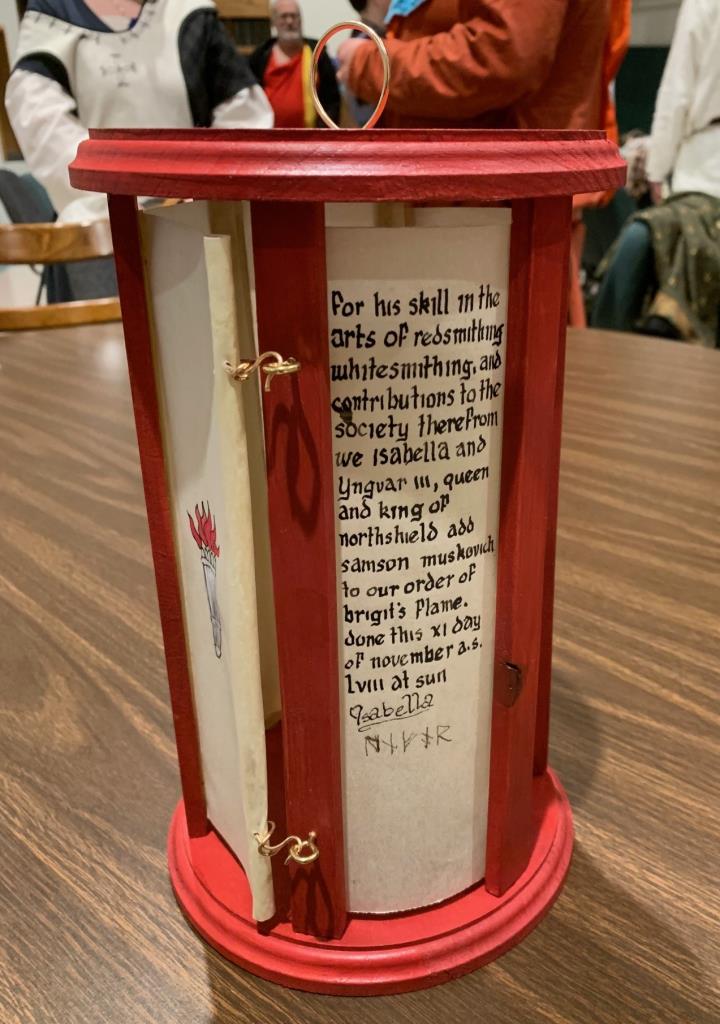 for his skill in the
arts of redsmithing
whitesmithing, and
contributions to the
society therefrom
we isabella and
yngvar iii, queen
and king of
northshield add
samson muskovich
to our order of
brigit's flame.
done this xi day
of november a.s.
lviii at sun
Isabella